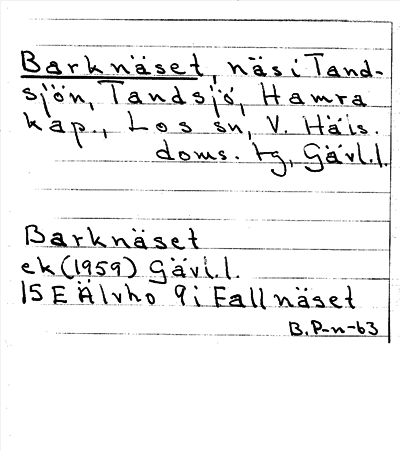 Barknäset, näs i Tand-
sjön, Tandsjö, Hamra
kap., Los sn, V. Häls.
doms. tg, Gävl.l.
Barknäset
ek (1959) Gävl.l.
15 E Älvho 9 i Fallnäset
B. P-n-63